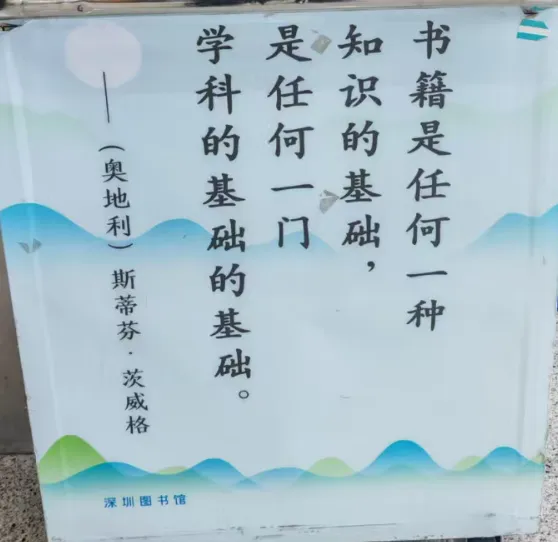 书籍是任何一种
知识的基础，
是任何一门
学科的基础的基础。
——（奥地利）斯蒂芬·茨威格
深圳图书馆